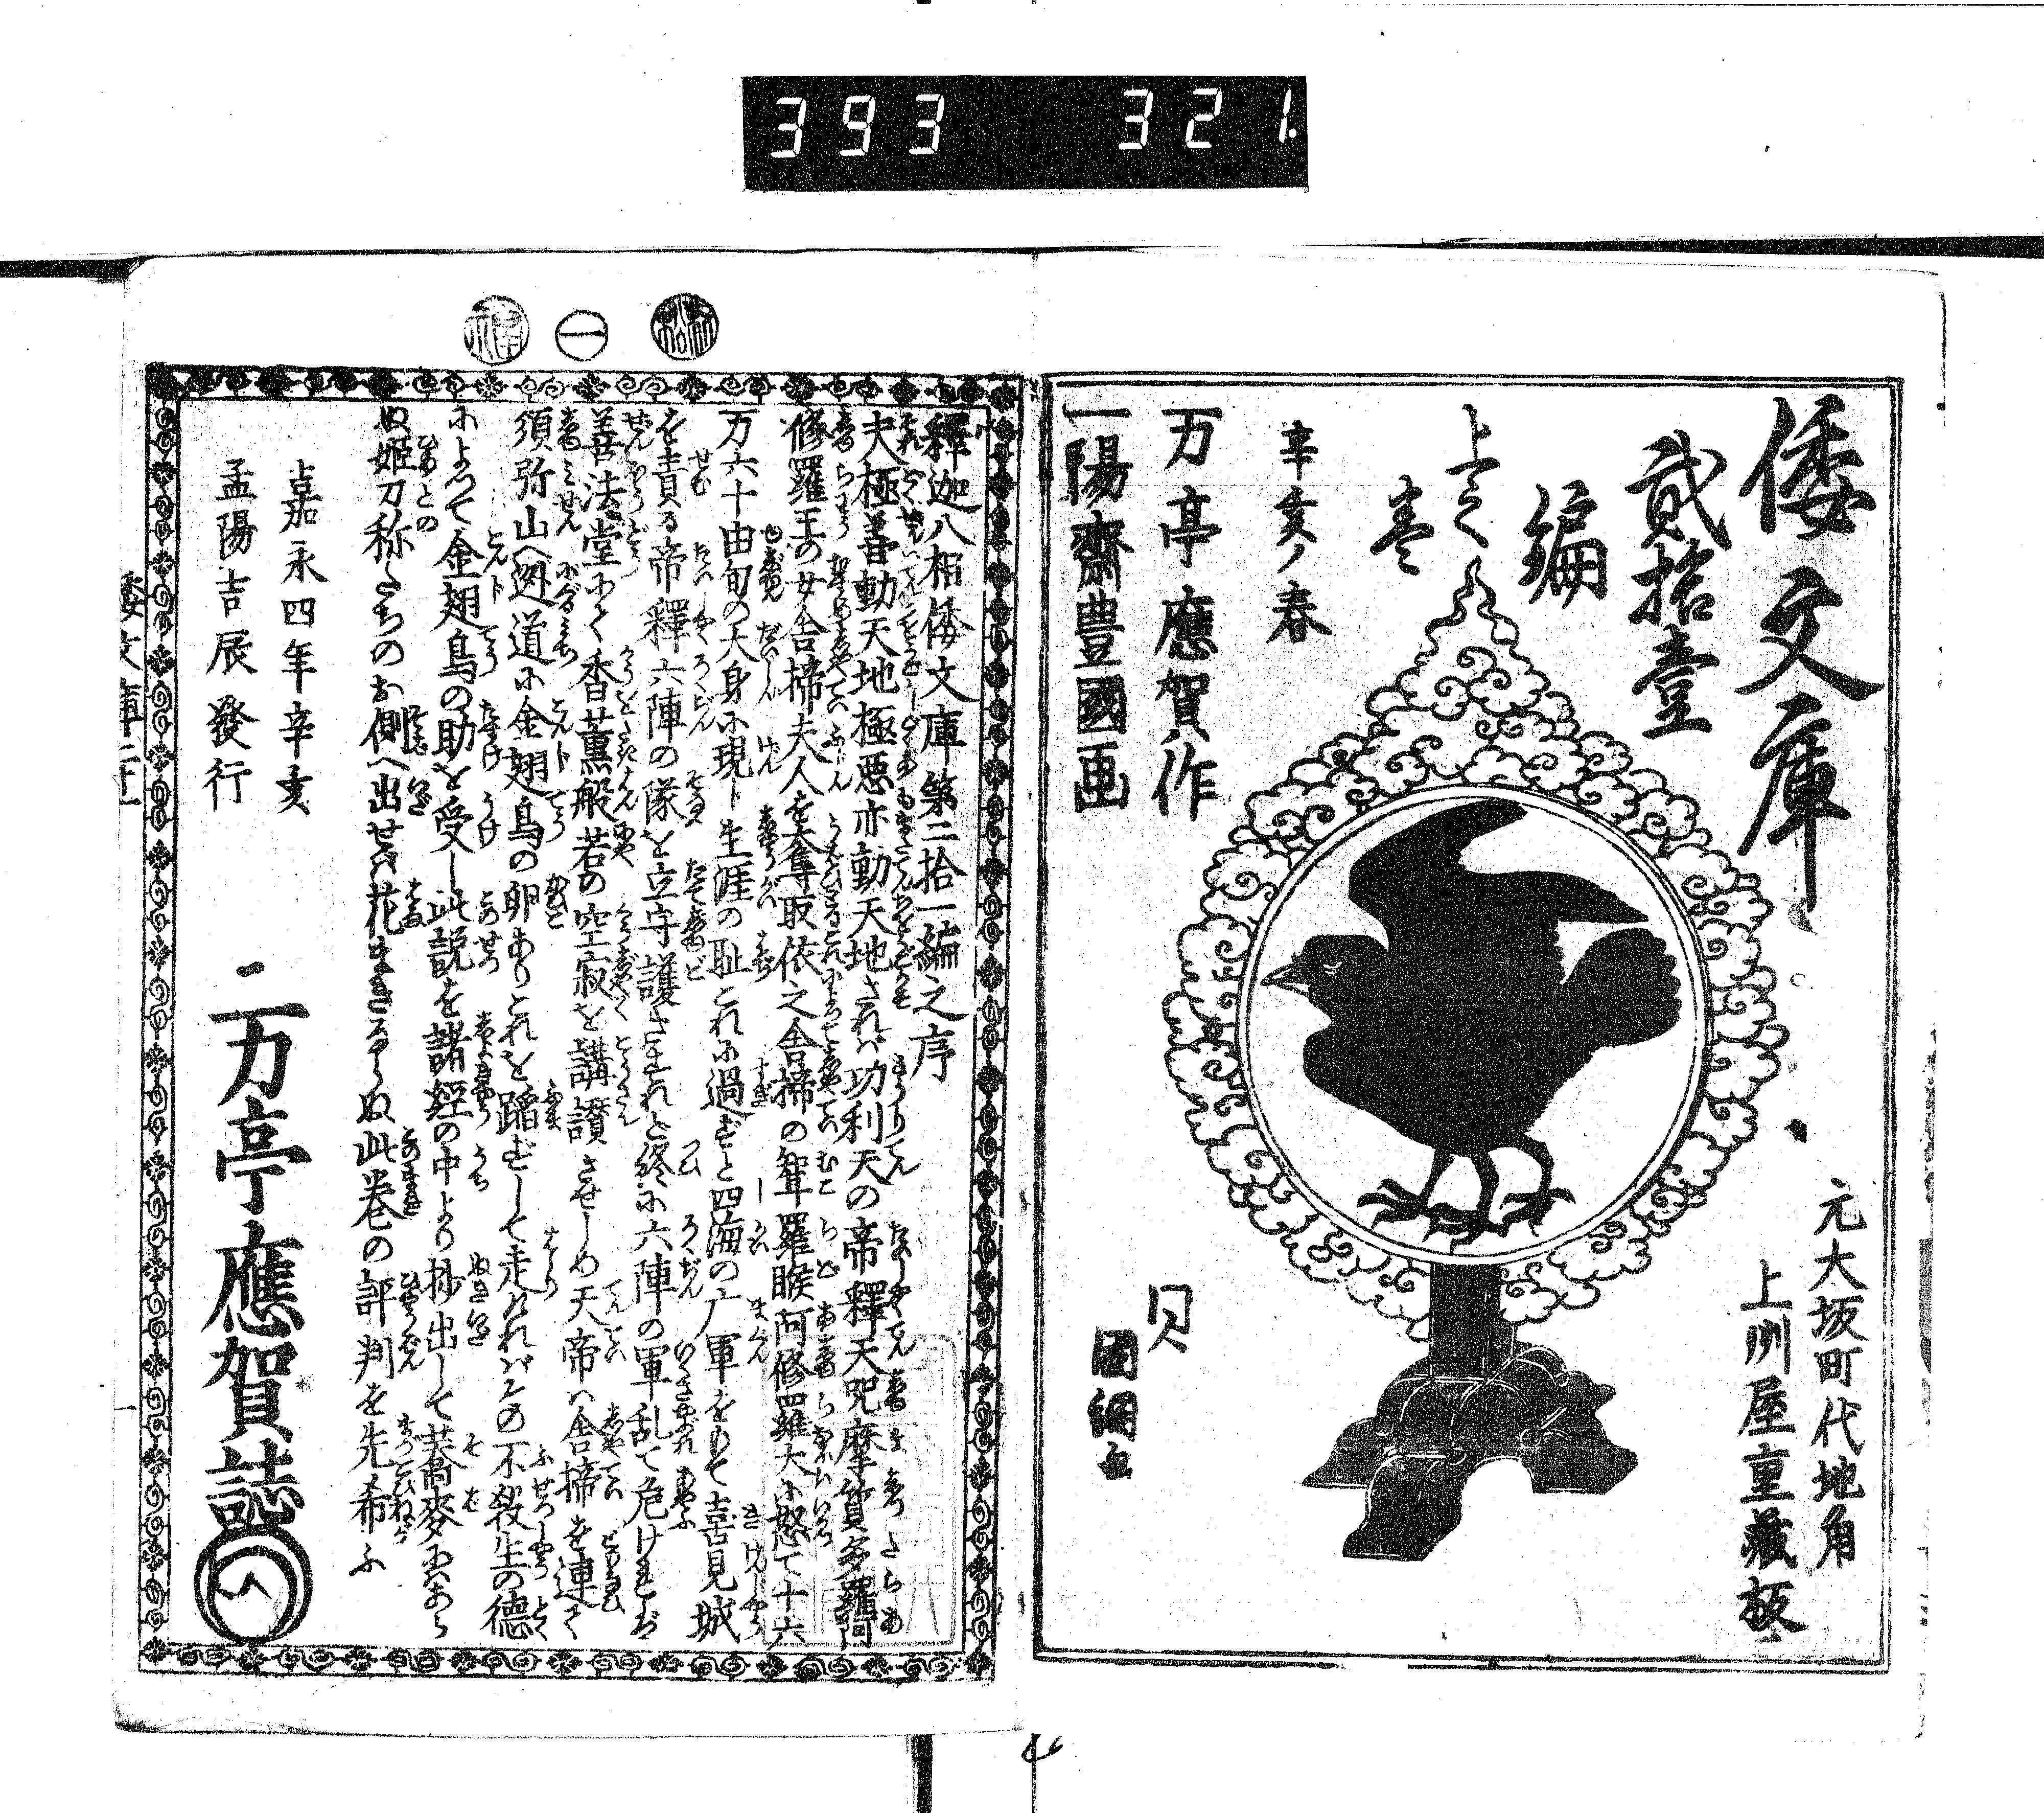 393 321.
倭文庫
貳拾壹
編
上之
巻
辛亥ノ春
万亭應賀作
一陽齋豊國画
元大坂町代地角
上州屋重藏板
國綱画
釋迦八相倭文庫第二拾一編之序
夫極善動天地極悪亦動天地されバ功利天の帝釋天毘摩質多羅阿
修羅王の女舎揥夫人を奪取依之舎揥の聟羅睺阿修羅大に怒て十六
万六十由旬の大身に現じ生涯の恥これに過ずと四海の广軍をもて喜見城
を責る帝釋六陣の隊を立守護させれど終に六陣の軍乱て危けれバ
善法堂にて香薫般若の空寂を講讃させしめ天帝ハ舎揥を連て
須弥山へ迯道に金翅鳥の卵ありこれを蹈ずして走れバその不殺生の徳
によつて金翅鳥の助を受し此説を諸經の中より抄出して蕎麥にあら
ぬ姫刀称たちのお側へ出せバ花まきならぬ此巻の評判を先希ふ
嘉永四年辛亥
孟陽吉辰發行
万亭應賀誌
倭文庫二十一